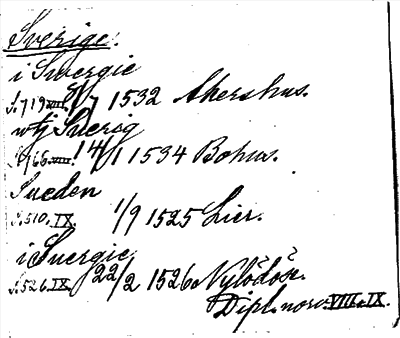 Sverige:
i Swergie
S. 719. VIII. 8/7 1532 Akershus.
wtj Suerig
S. 766. VIII. 14/1 1534 Bohus.
Sueden
S. 510. IX. 1/9 1525 Lier.
i Suergie
S. 526. IX. 22/2 1526. Nylödöse.
Dipl. norv. VIII. & IX.